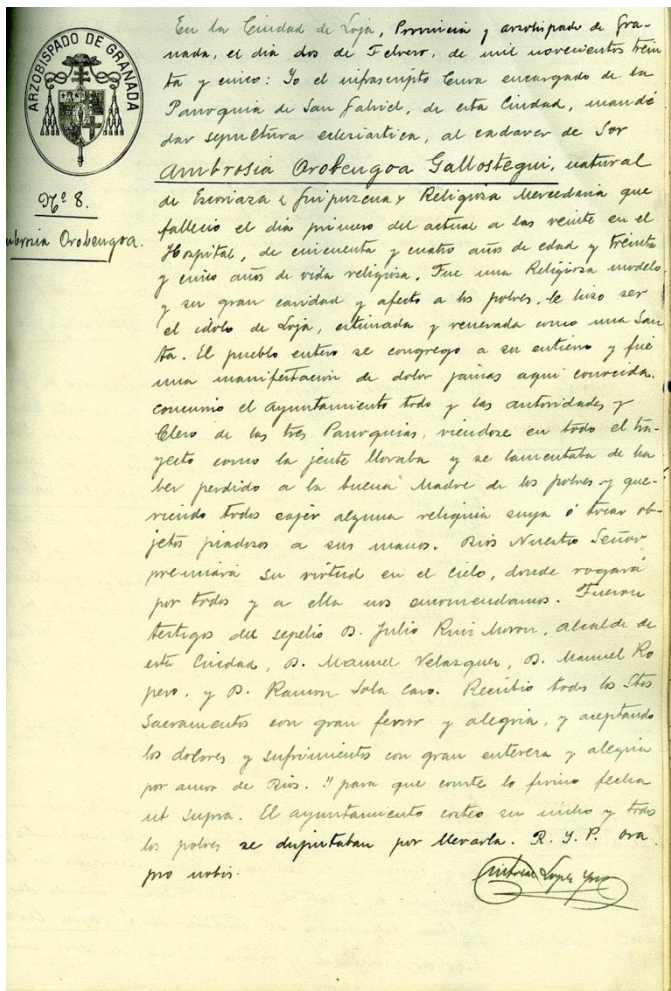 ARZOBISPADO DE GRANADA
Nº 8.
mbrosia Orobengoa.
En la Ciudad de Loja, Provincia y arzobispado de Gra-
nada, el dia dos de Febrero, de mil novecientos trein
ta y cinco: Yo el infrascripto Cura encargado de la
Parroquia de San Gabriel, de esta Ciudad, mandé
dar sepultura eclesiastica, al cadaver de Sor
Ambrosia Orobengoa Gallostegui, natural
de Escoriaza (Guipuzcoa) y Religiosa Mercedaria que
fallecio el dia primero del actual a las veinte en el
Hospital, de cincuenta y cuatro años de edad y treinta
y cinco años de vida religiosa. Fue una Religiosa modelo
y su gran caridad y afecto a los pobres, le hizo ser
el idolo de Loja, estimada y venerada como una San
ta. El pueblo entero se congrego a su entierro y fué
una manifestacion de dolor jamas aqui conocida.
concurrio el ayuntamiento todo y las autoridades y
Clero de las tres Parroquias, viendose en todo el tra-
yecto como la jente lloraba y se lamentaba de ha
ber perdido a la buena Madre de los pobres y que-
riendo todos cojer alguna reliquia suya ó tocar ob-
jetos piadosos a sus manos. Dios Nuestro Señor
premiará su virtud en el cielo, donde rogará
por todos y a ella nos encomendamos. Fueron
testigos del sepelio D. Julio Ruiz Moron, alcalde de
esta Ciudad, D. Manuel Velazquez, D. Manuel Ro
pero, y D. Ramon Sola Caro. Recibio todos los Stos
Sacramentos con gran fervor y alegria, y aceptando
los dolores y sufrimientos con gran entereza y alegria
por amor de Dios. Y para que conste lo firmo fecha
ut supra. El ayuntamiento costeo su nicho y todos
los pobres se disputaban por llevarla. R. I. P. ora
pro nobis.
Lopez